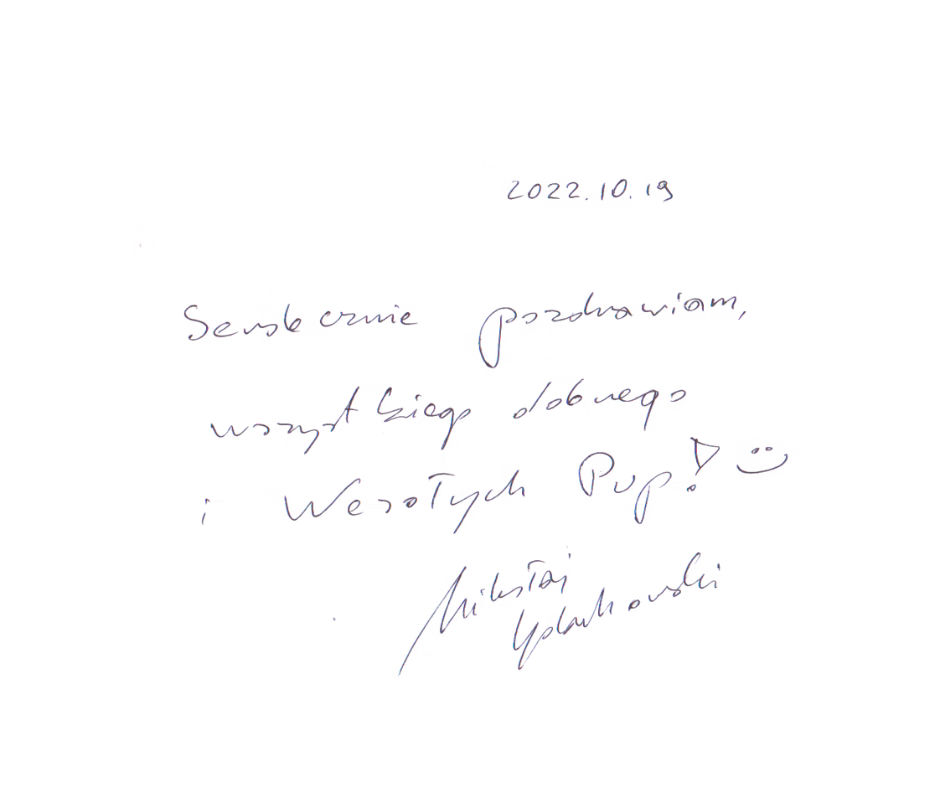 2022.10.19
Serdecznie pozdrawiam,
wszystkiego dobrego
i Wesołych Pup! :)
Mikołaj